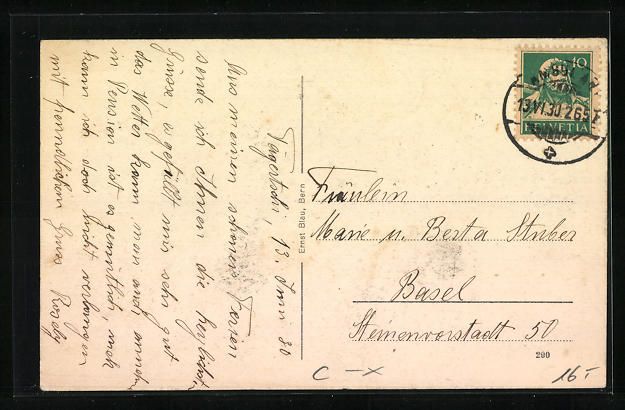 Tägertschi, 13. Juni 30
Aus meinen schönen Ferien
sende ich Ihnen die herzlichst.
Grüsse, es gefällt mir sehr gut
das Wetter kann man auch annehm.
in Pension ist es gemütlich, mehr
kann ich doch nicht verlangen
mit freundlichem Gruss
Ernst Blau, Bern
10
13.VI.30.
HELVETIA
Fräulein
Marie u. Berta Struber
Basel
Steinenvorstadt 50
290
C -x
16.-